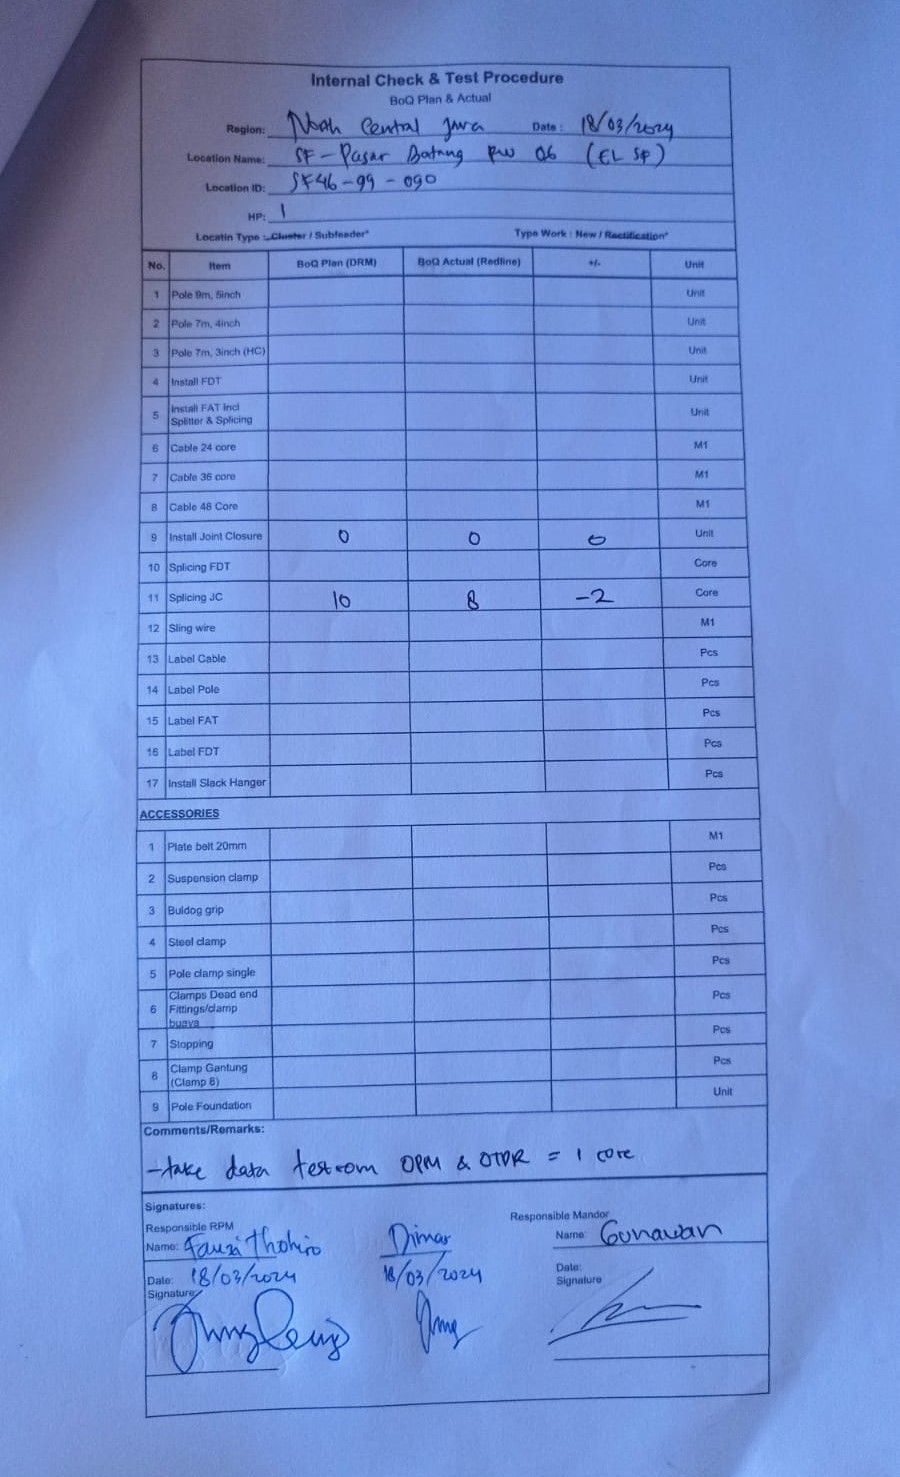 Internal Check & Test Procedure
BoQ Plan & Actual
Region: North Central Java Date: 18/03/2024
Location Name: SF-Pasar Batang RW 06 (EL SF)
Location ID: SF46-99-090
HP: 1
Locatin Type : Cluster / Subfeeder* Type Work : New / Rectification*
No. Item BoQ Plan (DRM) BoQ Actual (Redline) +/- Unit
1 Pole 9m, 5inch Unit
2 Pole 7m, 4inch Unit
3 Pole 7m, 3inch (HC) Unit
4 Install FDT Unit
5 Install FAT incl Splitter & Splicing Unit
6 Cable 24 core M1
7 Cable 36 core M1
8 Cable 48 Core M1
9 Install Joint Closure 0 0 0 Unit
10 Splicing FDT Core
11 Splicing JC 10 8 -2 Core
12 Sling wire M1
13 Label Cable Pcs
14 Label Pole Pcs
15 Label FAT Pcs
16 Label FDT Pcs
17 Install Slack Hanger Pcs
ACCESSORIES
1 Plate belt 20mm M1
2 Suspension clamp Pcs
3 Buldog grip Pcs
4 Steel clamp Pcs
5 Pole clamp single Pcs
6 Clamps Dead end Fittings/clamp buaya Pcs
7 Stopping Pcs
8 Clamp Gantung (Clamp 8) Pcs
9 Pole Foundation Unit
Comments/Remarks:
-take data testcom OPM & OTDR = 1 core
Signatures:
Responsible RPM Responsible Mandor
Name: Fauzi Thohiro Dimas Name: Gunawan
Date: 18/03/2024 18/03/2024 Date:
Signature Signature